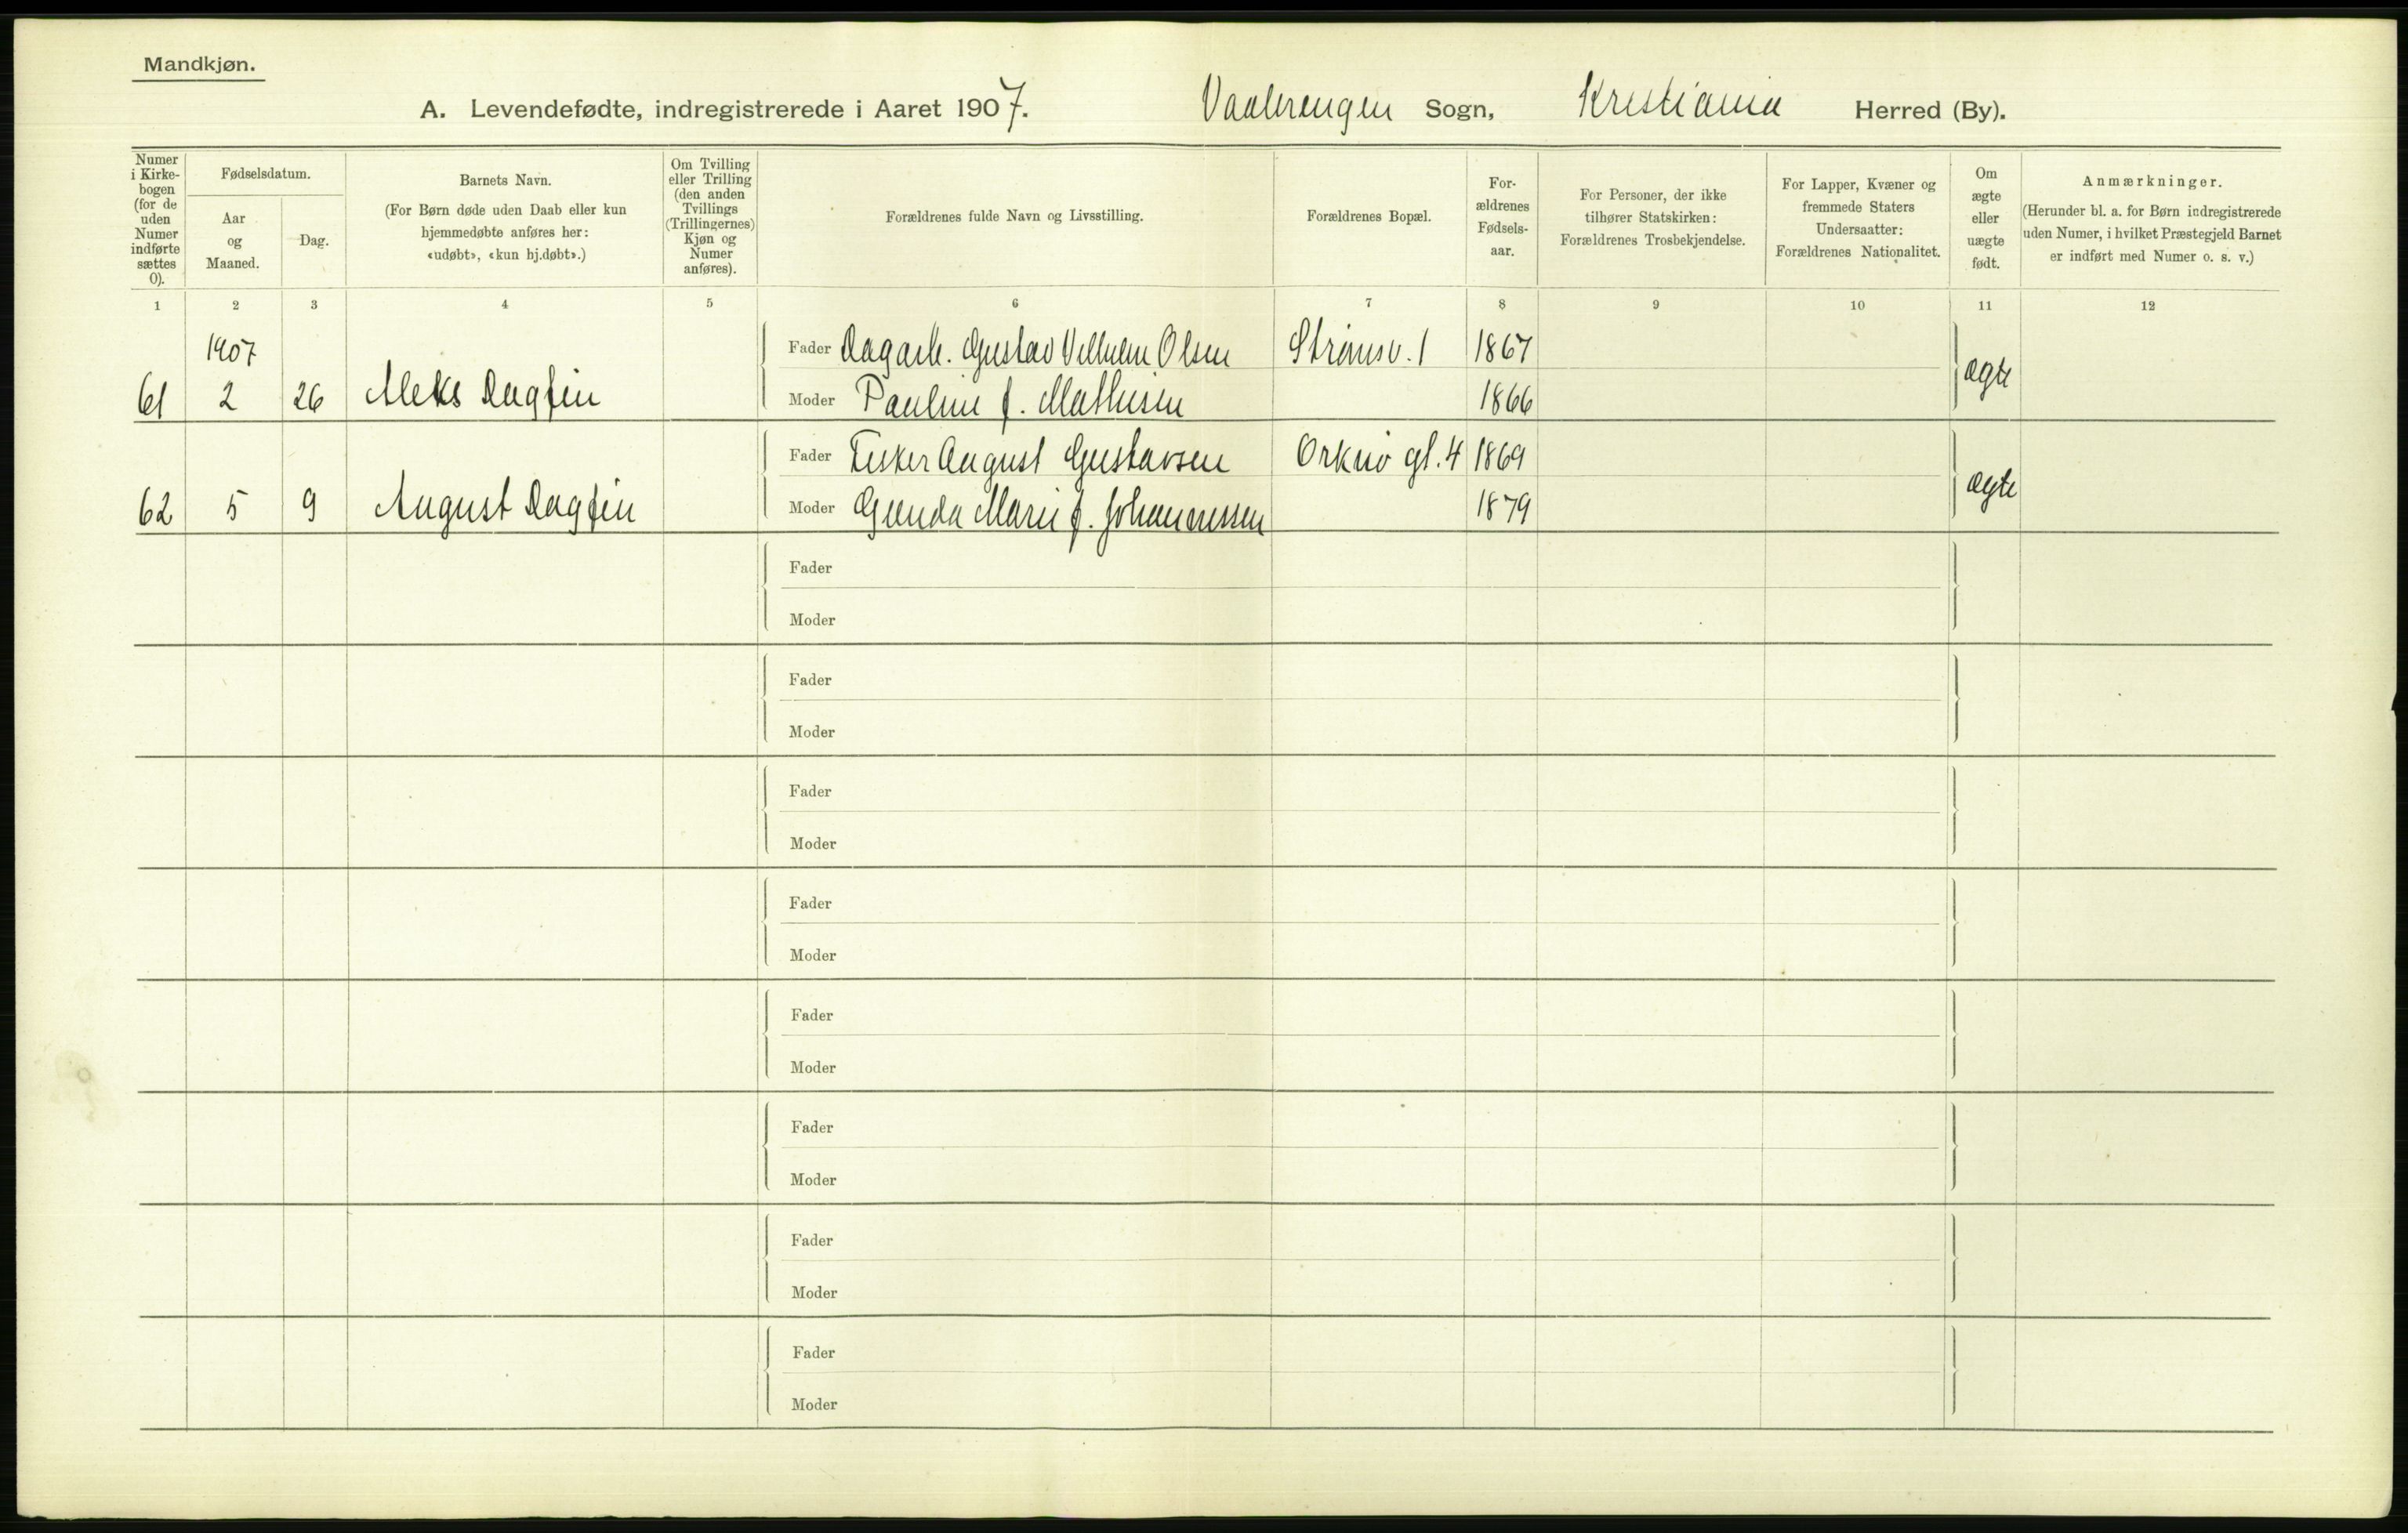 Mandkjøn.
A. Levendefødte, indregistrerede i Aaret 1907. Vaalerengen Sogn, Kristiania Herred (By).
Numer i Kirke-bogen (for de uden Numer indførte sættes 0).
Fødselsdatum.
Aar og Maaned.
Dag.
Barnets Navn.
(For Børn døde uden Daab eller kun
hjemmedøbte anføres her:
«udøbt», «kun hj.døbt».)
Om Tvilling eller Trilling (den anden Tvillings (Trillingernes) Kjøn og Numer anføres).
Forældrenes fulde Navn og Livsstilling.
Forældrenes Bopæl.
For-ældrenes Fødsels-aar.
For Personer, der ikke
tilhører Statskirken:
Forældrenes Trosbekjendelse.
For Lapper, Kvæner og
fremmede Staters
Undersaatter:
Forældrenes Nationalitet.
Om ægte eller uægte født.
Anmærkninger.
(Herunder bl. a. for Børn indregistrerede
uden Numer, i hvilket Præstegjeld Barnet
er indført med Numer o. s. v.)
1 2 3 4 5 6 7 8 9 10 11 12
1907 Fader Dagarb. Gustav Vilhelm Olsen Strømsv. 1 1867
61 2 26 Aleks Dagfin Moder Pauline f. Mathisen 1866 ægte
Fader Fisker August Gustavsen Orknø gt. 4 1869
62 5 9 August Dagfin Moder Gunda Marie f. Johannessen 1879 ægte
Fader
Moder
Fader
Moder
Fader
Moder
Fader
Moder
Fader
Moder
Fader
Moder
Fader
Moder
Fader
Moder